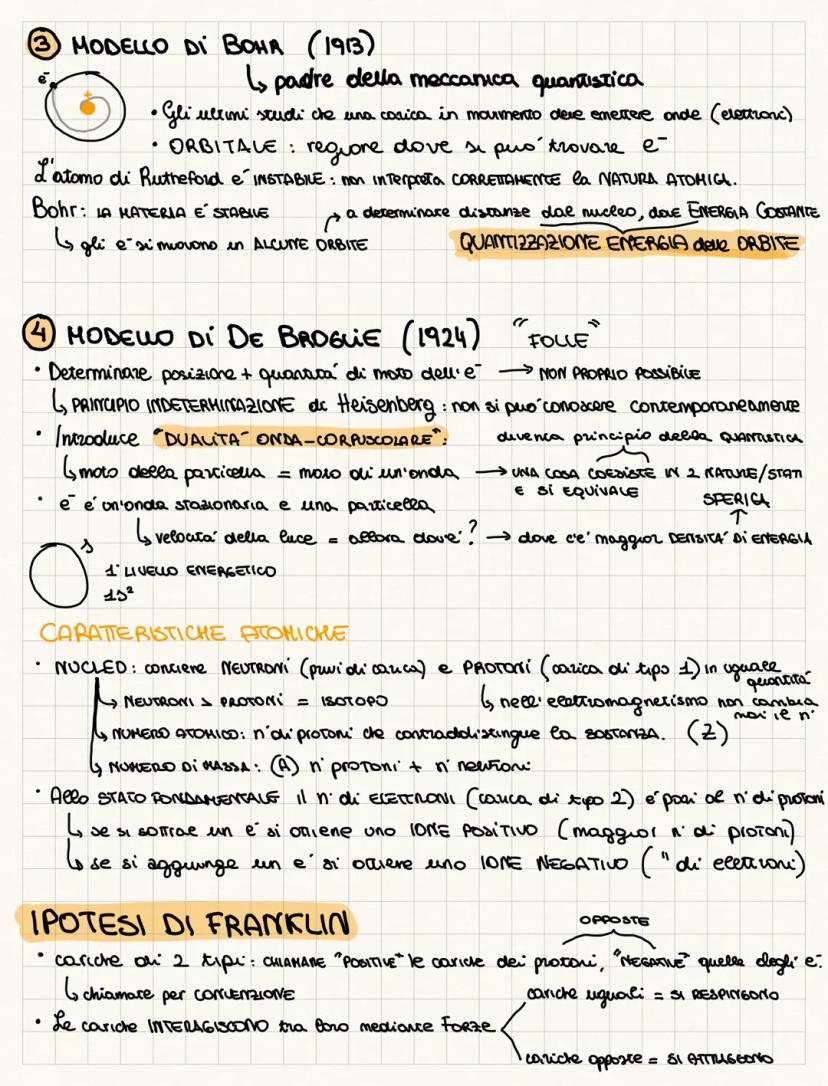 3 MODELLO Di BOHR (1913)
↳ padre della meccanica quantistica
e⁻
+
• Gli ultimi studi che una carica in movimento deve emettere onde (elettrone)
• ORBITALE : regione dove si puo' trovare e⁻
L'atomo di Rutheford e' INSTABILE : non interpreta CORRETTAMENTE la NATURA ATOMICA.
Bohr: LA MATERIA E' STABILE
→ a determinare distanze dal nucleo, dove ENERGIA COSTANTE
↳ gli e⁻ si muovono in ALCUNE ORBITE
QUANTIZZAZIONE ENERGIA delle ORBITE
4 MODELLO Di DE BROGLiE (1924) "FOLLE"
• Determinare posizione + quantita' di moto dell'e⁻ → NON PROPRIO POSSIBILE
↳ PRINCIPIO INDETERMINAZIONE di Heisenberg : non si puo' conoscere contemporaneamente
• Introduce "DUALITA' ONDA-CORPUSCOLARE":
diventa principio della QUANTISTICA
↳ moto della particella = moto di un'onda → UNA COSA COESISTE IN 2 NATURE/STATI
E SI EQUIVALE
• e⁻ e' un'onda stazionaria e una particella
SFERICA
↑
↳ velocita' della luce = allora dove'? → dove c'e' maggior DENSITA' DI ENERGIA
s
1° LIVELLO ENERGETICO
1s²
CARATTERISTICHE ATOMICHE
• NUCLEO : contiene NEUTRONi (privi di carica) e PROTONi (carica di tipo 1) in uguale
quantità
↳ NEUTRONI > PROTONI = ISOTOPO
↳ nell'elettromagnetismo non cambia
mai il n°
↳ NUMERO ATOMICO: n° di protoni che contraddistingue la SOSTANZA. (Z)
↳ NUMERO Di MASSA : (A) n° protoni + n° neutroni
• Allo STATO FONDAMENTALE il n° di ELETTRONI (carica di tipo 2) e' pari al n° di protoni
↳ se si sottrae un e⁻ si ottiene uno IONE POSITIVO (maggior n° di protoni)
↳ se si aggiunge un e⁻ si ottiene uno IONE NEGATIVO ( " di elettroni)
IPOTESI DI FRANKLIN
OPPOSTE
• cariche di 2 tipi : CHIAMARE "POSITIVE" le cariche dei protoni, "NEGATIVE" quelle degli e⁻.
↳ chiamate per CONVENZIONE
cariche uguali = SI RESPINGONO
• Le cariche INTERAGISCONO tra loro mediante FORZE
cariche opposte = SI ATTRAGGONO